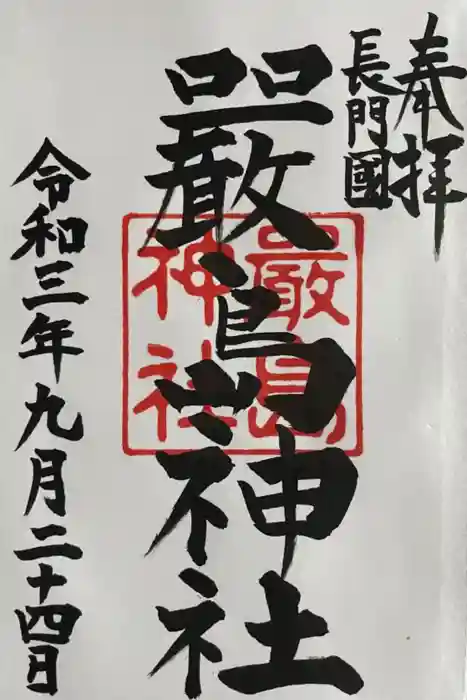 奉拝
長門國
嚴島神社
嚴島
神社
令和三年九月二十四日